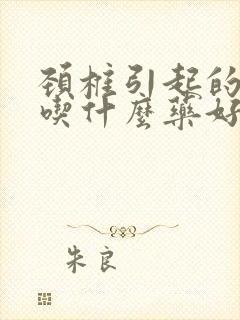 頚椎引起的
喫什麼藥好
朱良